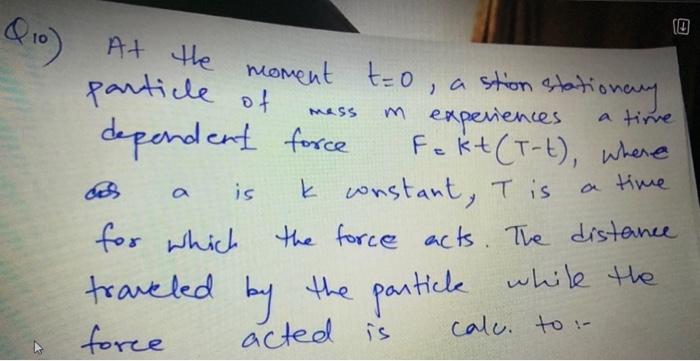 Q10) At the moment t=0, a stion stationary
particle of mass m experiences a time
dependent force F= kt(T-t), where
a is k constant, T is a time
for which the force acts. The distance
traveled by the particle while the
force acted is calc. to :-